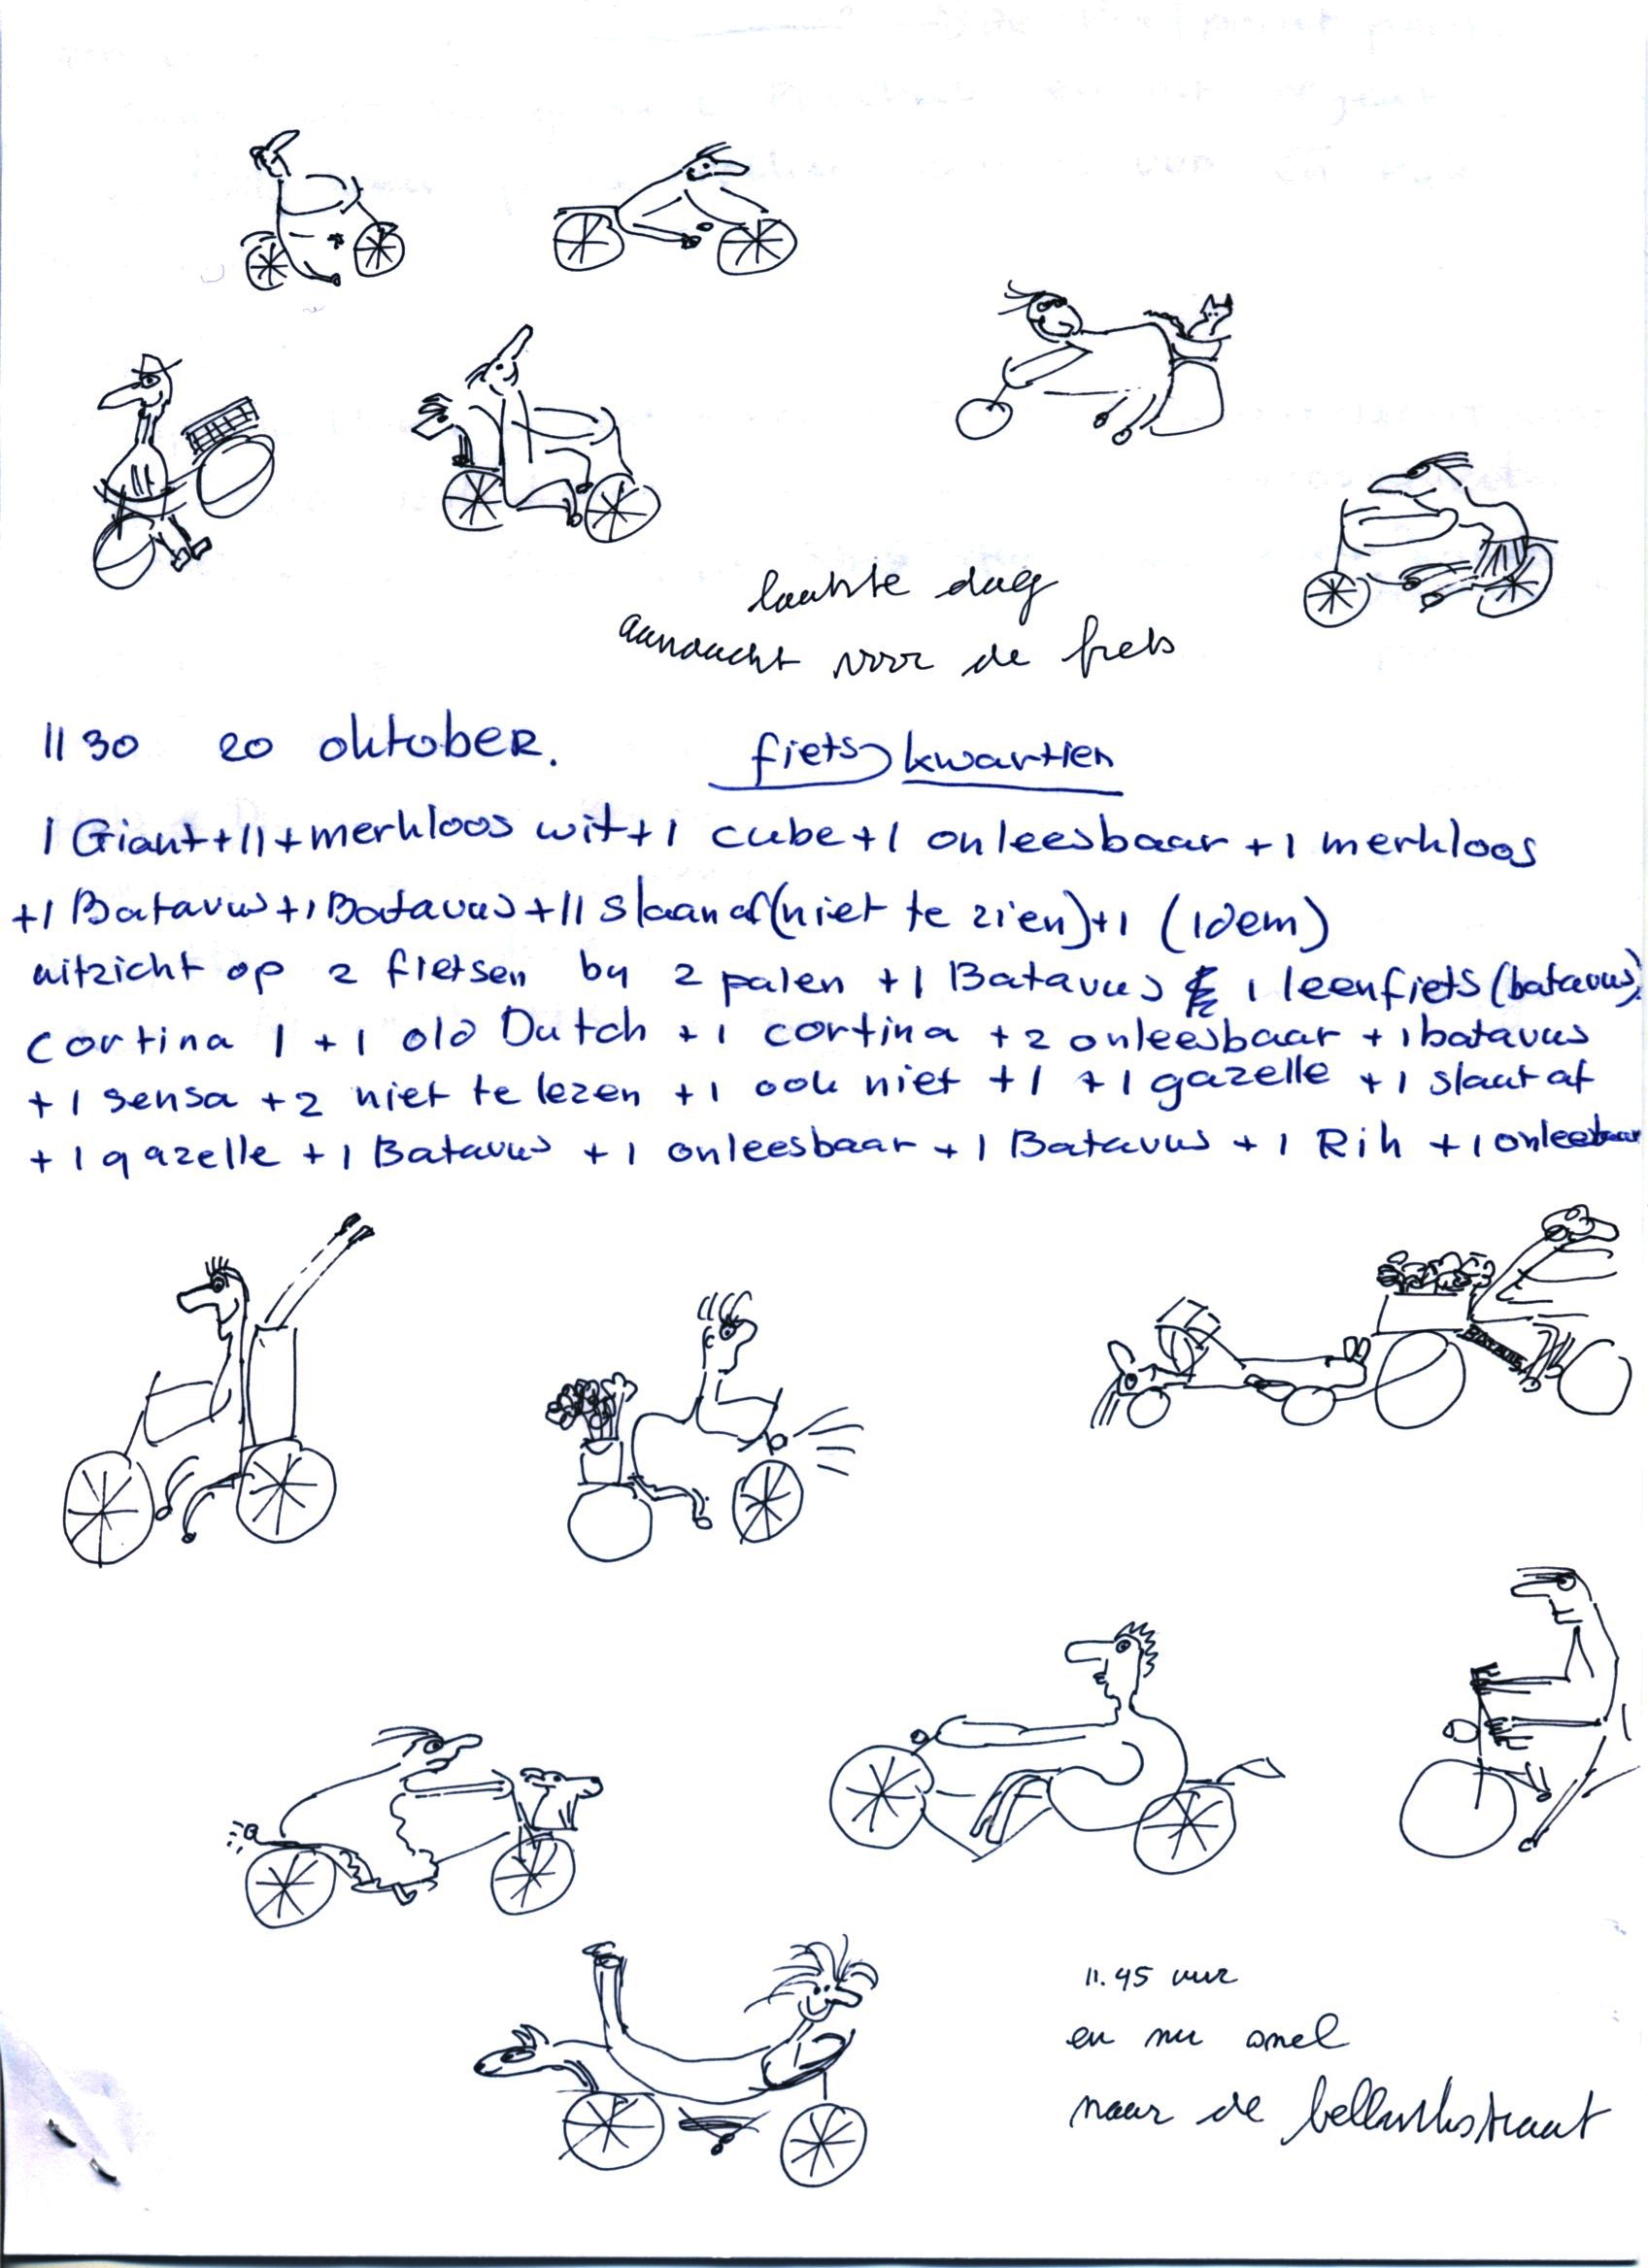 laatste dag
aandacht voor de fiets
11 30 20 oktober. fiets kwartier
1 Giant + 11 + merkloos wit + 1 cube + 1 onleesbaar + 1 merkloos
+1 Batavus +1 Batavus + 11 slaan af (niet te zien) +1 (idem)
uitzicht op 2 fietsen by 2 palen +1 Batavus 1 leenfiets (batavus)
Cortina 1 + 1 old Dutch + 1 cortina + 2 onleesbaar + 1 batavus
+ 1 sensa + 2 niet te lezen + 1 ook niet + 1 + 1 gazelle + 1 slaat af
+ 1 gazelle + 1 Batavus + 1 onleesbaar + 1 Batavus + 1 Rih + 1 onleesbaar
Batavus
11.45 uur
en nu snel
naar de